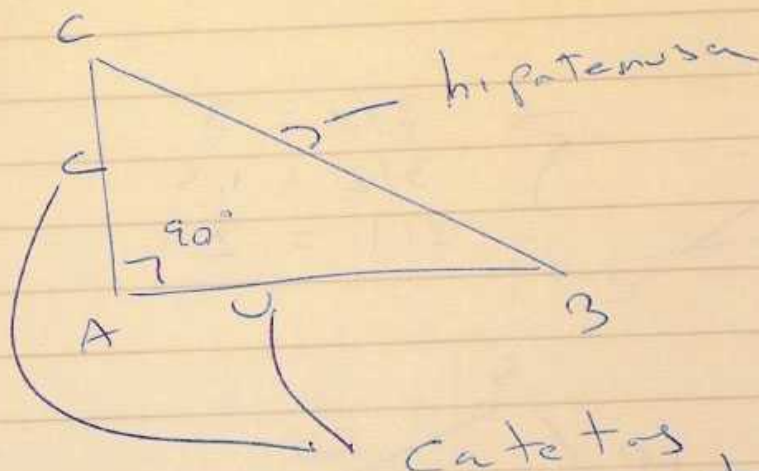 C
hipotenusa
90°
A
B
Catetos